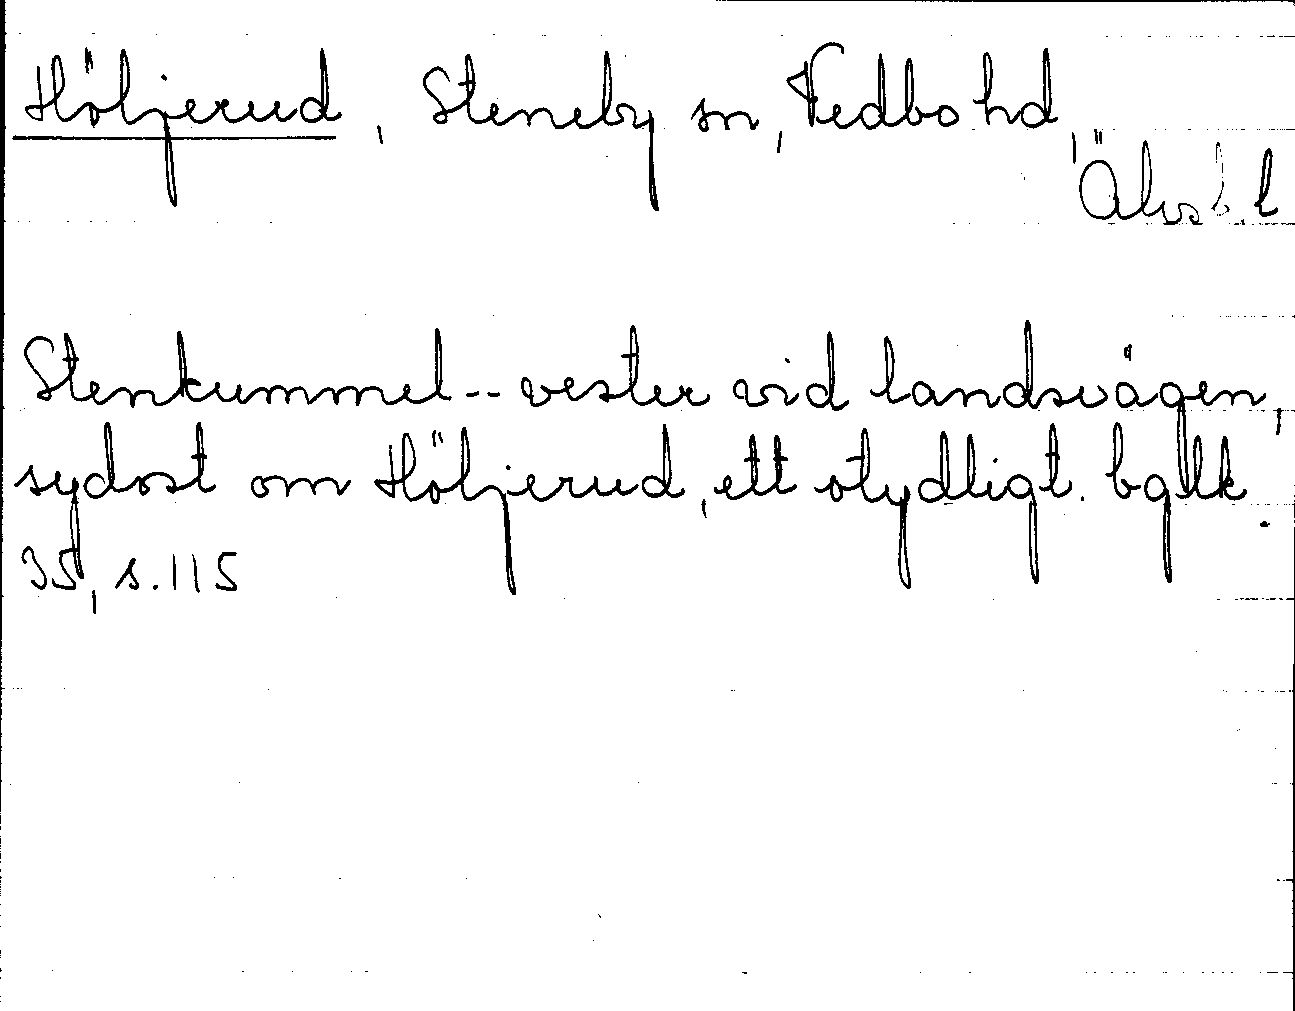 Höljerud, Steneby sn, Vedbo hd,
Älvsb. l
Stenkummel -- vester vid landsvägen,
sydost om Höljerud, ett otydligt. bglk.
35, s. 115